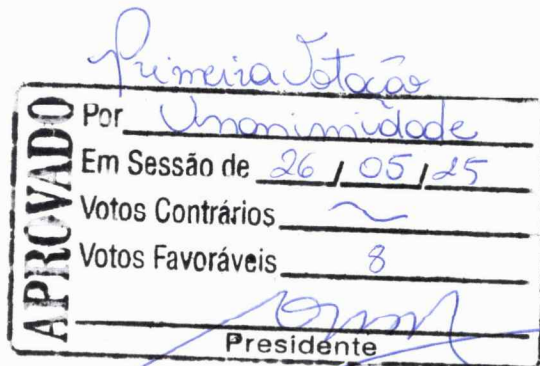 Primeira Votação
APROVADO
Por Unanimidade
Em Sessão de 26 / 05 / 25
Votos Contrários ~
Votos Favoráveis 8
Presidente